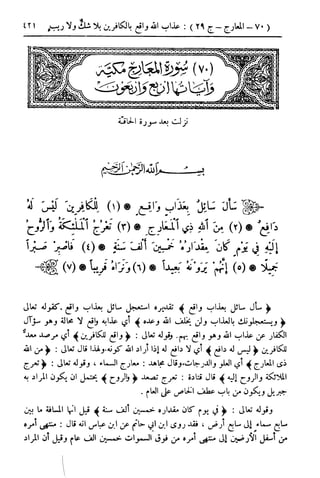 ( ٧٠ – المعارج – ج ٢٩ ) : عذاب الله واقع بالكافرين بلا شك ولا ريب ٤٢١
(٧٠) سورة المعارج مكية
وآياتها أربع وأربعون
نزلت بعد سورة الحاقة
بسم الله الرحمن الرحيم
سَأَلَ سَائِلٌ بِعَذَابٍ وَاقِعٍ * (١) لِلْكَافِرِينَ لَيْسَ لَهُ
دَافِعٌ * (٢) مِنَ اللهِ ذِي الْمَعَارِجِ * (٣) تَعْرُجُ الْمَلَٰئِكَةُ وَالرُّوحُ
إِلَيْهِ فِي يَوْمٍ كَانَ مِقْدَارُهُ خَمْسِينَ أَلْفَ سَنَةٍ * (٤) فَاصْبِرْ صَبْرًا
جَمِيلًا * (٥) إِنَّهُمْ يَرَوْنَهُ بَعِيدًا * (٦) وَنَرَاهُ قَرِيبًا * (٧)
﴿ سأل سائل بعذاب واقع ﴾ تقديره استعجل سائل بعذاب واقع . كقوله تعالى
﴿ ويستعجلونك بالعذاب ولن يخلف الله وعده ﴾ أي عذابه واقع لا محالة وهو سؤال
الكفار عن عذاب الله وهو واقع بهم. وقوله تعالى : ﴿ واقع للكافرين ﴾ أي مرصد معد
للكافرين ﴿ ليس له دافع ﴾ أي لا دافع له إذا أراد الله كونه ولهذا قال تعالى : ﴿ من الله
ذي المعارج ﴾ أي العلو والدرجات، وقال مجاهد : معارج السماء ، وقوله تعالى : ﴿ تعرج
الملائكة والروح إليه ﴾ قال قتادة : تعرج تصعد ﴿ والروح ﴾ يحتمل ان يكون المراد به
جبريل ويكون من باب عطف الخاص على العام .
وقوله تعالى : ﴿ في يوم كان مقداره خمسين ألف سنة ﴾ قيل انها المسافة ما بين
سابع سماء إلى سابع أرض ، فقد روى ابن أبي حاتم عن ابن عباس انه قال : منتهى أمره
من أسفل الأرضين إلى منتهى أمره من فوق السموات خمسين الف عام وقيل أن المراد